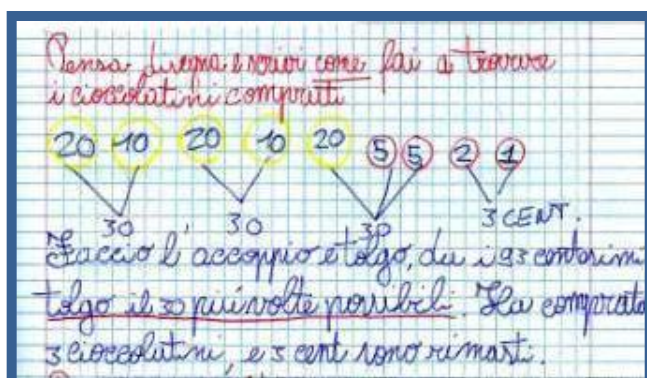 Pensa disegna e scrivi come fai a trovare
i cioccolatini comprati
20 10 20 10 20 5 5 2 1
30 30 30 3 CENT.
Faccio l'accoppio e tolgo, da i 93 centesimi
tolgo il 30 più volte possibili. Ha comprato
3 cioccolatini, e 3 cent sono rimasti.